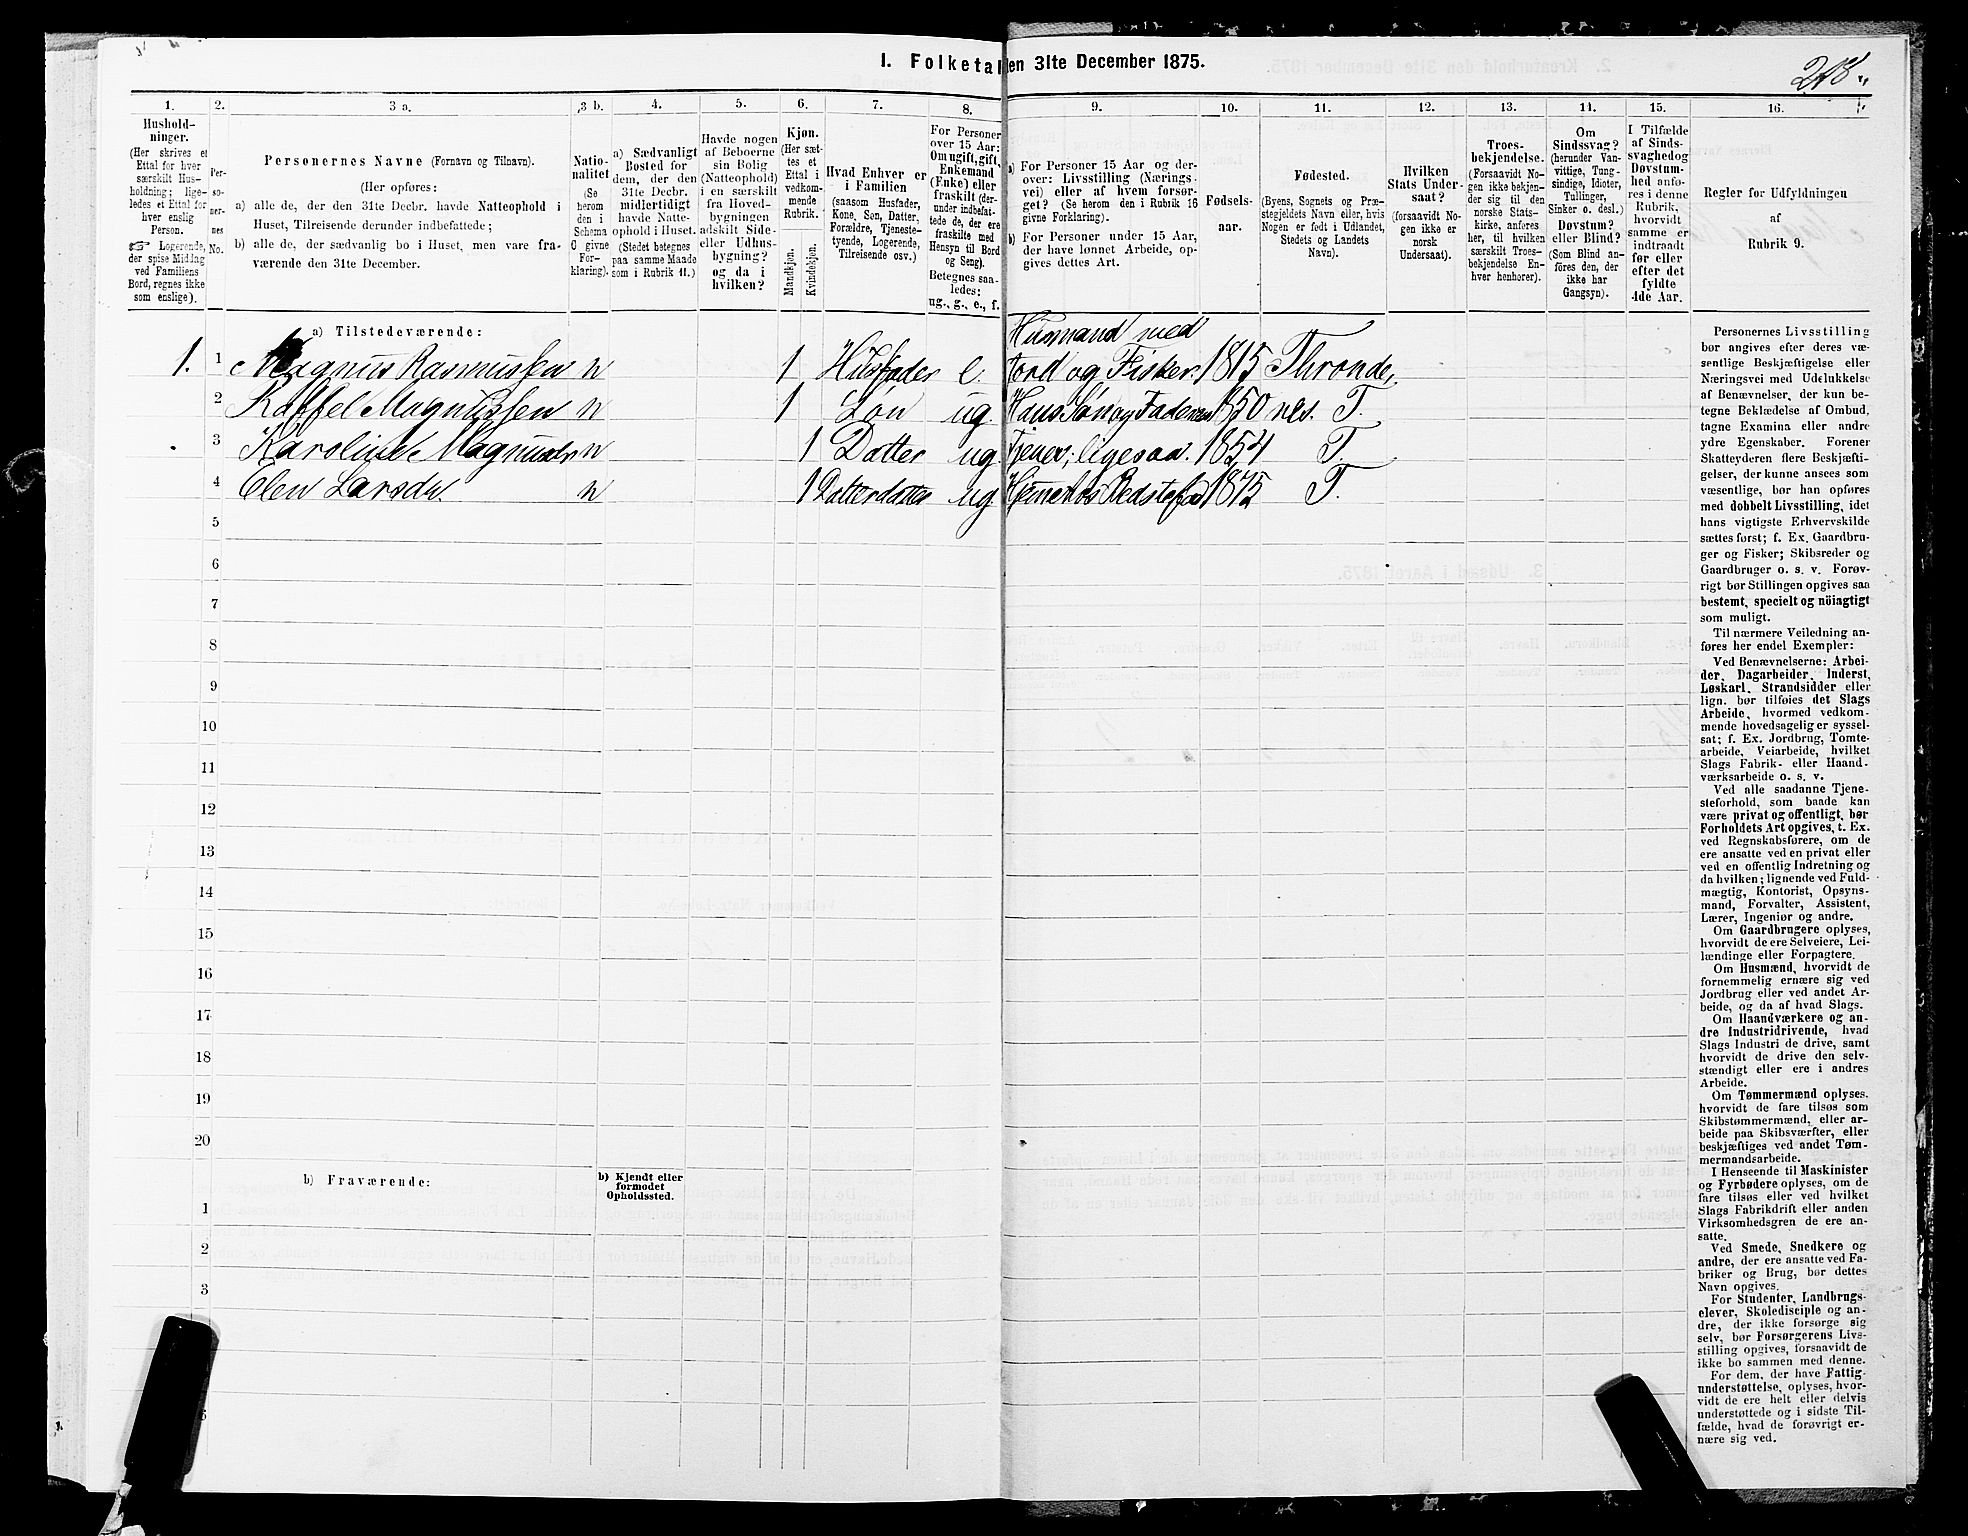 I. Folketal den 31te December 1875.
1. 2. 3 a. 3 b. 4. 5. 6. 7. 8. 9. 10. 11. 12. 13. 14. 15. 16.
Hushold-
ninger.
(Her skrives et
Ettal for hver
særskilt Hus-
holdning; lige-
ledes et Ettal for
hver enslig
Person.
☞ Logerende,
der spise Middag
ved Familiens
Bord, regnes ikke
som enslige).
Per-
so-
ner-
nes
No.
Personernes Navne (Fornavn og Tilnavn).
(Her opføres:
a) alle de, der den 31te Decbr. havde Natteophold i
Huset, Tilreisende derunder indbefattede;
b) alle de, der sædvanlig bo i Huset, men vare fra-
værende den 31te December.
Natio-
nalitet
(Se
herom
den i
Schema
C givne
For-
klaring).
a) Sædvanligt
Bosted for
dem, der den
31te Decbr.
midlertidigt
havde Natte-
ophold i Huset.
(Stedet betegnes
paa samme Maade
som i Rubrik 11.)
Havde nogen
af Beboerne
sin Bolig
(Natteophold)
i en særskilt
fra Hoved-
bygningen
adskilt Side-
eller Udhus-
bygning?
og da i
hvilken?
Kjøn.
(Her sæt-
tes et
Ettal i
vedkom-
mende
Rubrik.
Mandkjøn.
Kvindekjøn.
Hvad Enhver er
i Familien
(saasom Husfader,
Kone, Søn, Datter,
Forældre, Tjeneste-
tyende, Logerende,
Tilreisende osv.)
For Personer
over 15 Aar:
Om ugift, gift,
Enkemand
(Enke) eller
fraskilt (der-
under indbefat-
tede de, der ere
fraskilte med
Hensyn til Bord
og Seng).
Betegnes saa-
ledes:
ug., g., e., f.
a) For Personer 15 Aar og der-
over: Livsstilling (Nærings-
vei) eller af hvem forsør-
get? (Se herom den i Rubrik 16
givne Forklaring).
b) For Personer under 15 Aar,
der have lønnet Arbeide, op-
gives dettes Art.
Fødsels-
aar.
Fødested.
(Byens, Sognets og Præ-
stegjeldets Navn eller, hvis
Nogen er født i Udlandet,
Stedets og Landets
Navn).
Hvilken
Stats Under-
saat?
(forsaavidt No-
gen ikke er
norsk
Undersaat).
Troes-
bekjendelse.
(Forsaavidt No-
gen ikke bekjen-
der sig til den
norske Stats-
kirke, anføres
her, til hvilken
særskilt Troes-
bekjendelse En-
hver henhører).
Om
Sindssvag?
(herunder Van-
vittige, Tung-
sindige, Idioter,
Tullinger,
Sinker o. desl.)
Døvstum?
eller Blind?
(Som Blind an-
føres den, der
ikke har
Gangsyn).
I Tilfælde
af Sinds-
svaghed og
Døvstum-
hed anfø-
res i denne
Rubrik,
hvorvidt
samme er
indtraadt
før eller
efter det
fyldte
4de Aar.
Regler for Udfyldningen
af
Rubrik 9.
a) Tilstedeværende:
Husmand med
1. 1 Magnus Rasmussen n 1 Husfader e. Jord og Fisker. 1815 Throndenes.
2 Raffel Magnussen n 1 Søn ug. Hans Søn og Faderens 1850 T.
3 Karoline Magnusdr n 1 Datter ug. Tjener, ligesaa. 1854 T.
4 Elen Larsdr n 1 Datterdatter ug 1875 T.
5
6
7
8
9
10
11
12
13
14
15
16
17
18
19
20
b) Fraværende:
b) Kjendt eller
formodet
Opholdssted.
1
2
3
5
Personernes Livsstilling
bør angives efter deres væ-
sentlige Beskjæftigelse eller
Næringsvei med Udelukkelse
af Benævnelser, der kun be-
tegne Beklædelse af Ombud,
tagne Examina eller andre
ydre Egenskaber. Forener
Skatteyderen flere Beskjæfti-
gelser, der kunne ansees som
væsentlige, bør han opføres
med dobbelt Livsstilling, idet
hans vigtigste Erhvervskilde
sættes først; f. Ex. Gaardbru-
ger og Fisker; Skibsreder og
Gaardbruger o. s. v. Forøv-
rigt bør Stillingen opgives saa
bestemt, specielt og nöiagtigt
som muligt.
Til nærmere Veiledning an-
føres her endel Exempler:
Ved Benævnelserne: Arbei-
der, Dagarbeider, Inderst,
Løskarl, Strandsidder eller
lign. bør tilføies det Slags
Arbeide, hvormed vedkom-
mende hovedsagelig er syssel-
sat; f. Ex. Jordbrug, Tomte-
arbeide, Veiarbeide, hvilket
Slags Fabrik- eller Haand-
værksarbeide o. s. v.
Ved alle saadanne Tjene-
steforhold, som baade kan
være privat og offentligt, bør
Forholdets Art opgives, t. Ex.
ved Regnskabsførere, om de
ere ansatte ved en privat eller
ved en offentlig Indretning og
da hvilken; lignende ved Fuld-
mægtig, Kontorist, Opsyns-
mand, Forvalter, Assistent,
Lærer, Ingeniør og andre.
Om Gaardbrugere oplyses,
hvorvidt de ere Selveiere, Lei-
lændinge eller Forpagtere.
Om Husmænd, hvorvidt de
fornemmelig ernære sig ved
Jordbrug eller ved andet Ar-
beide, og da af hvad Slags.
Om Haandværkere og an-
dre Industridrivende, hvad
Slags Industri de drive, samt
hvorvidt de drive den selv-
stændigt eller ere i andres
Arbeide.
Om Tømmermænd oplyses,
hvorvidt de fare tilsøs som
Skibstømmermænd, eller ar-
beide paa Skibsværfter, eller
beskjæftiges ved andet Tøm-
mermandsarbeide.
I Henseende til Maskinister
og Fyrbødere oplyses, om de
fare tilsøs eller ved hvilket
Slags Fabrikdrift eller anden
Virksomhedsgren de ere an-
satte.
Ved Smede, Snedkere og
andre, der ere ansatte ved Fa-
briker og Brug, bør dettes
Navn opgives.
For Studenter, Landbrugs-
elever, Skoledisciple og an-
dre, der ikke forsørge sig
selv, bør Forsørgerens Livs-
stilling opgives, forsaavidt de
ikke bo sammen med denne.
For dem, der have Fattig-
understøttelse, oplyses, hvor-
vidt de ere helt eller delvis
understøttede og i sidste Til-
fælde, hvad de forøvrigt er-
nære sig ved.